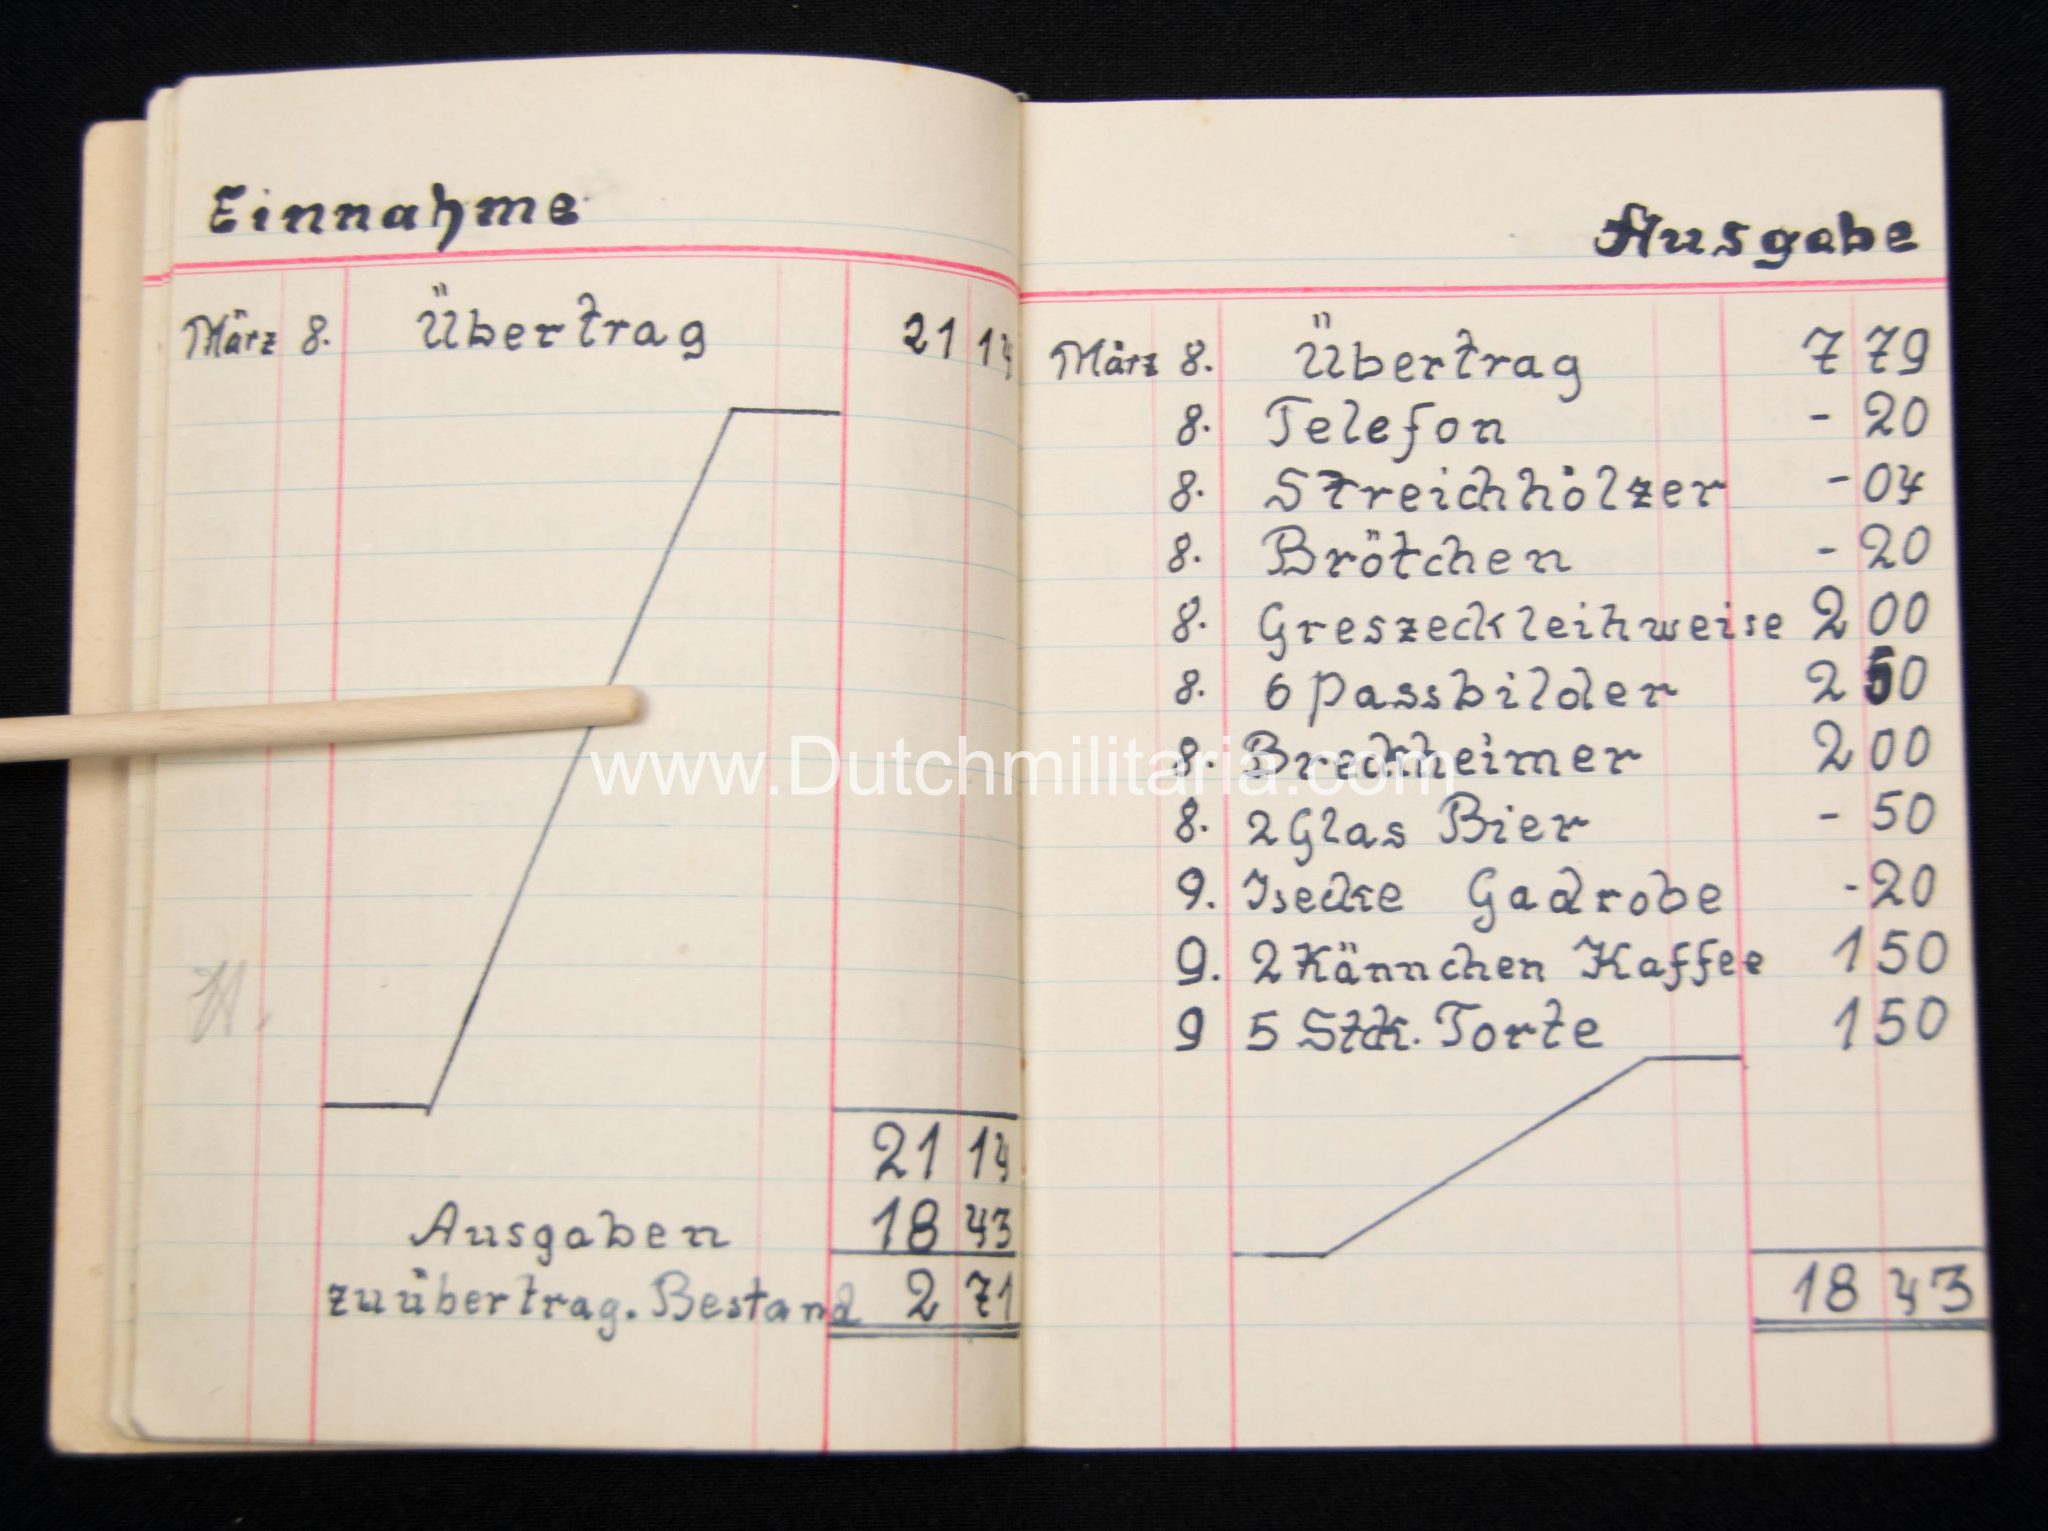 Einnahme
März 8. Übertrag 21 14
21 14
Ausgaben 18 43
zuübertrag. Bestand 2 71
Ausgabe
März 8. Übertrag 7 79
8. Telefon - 20
8. Streichhölzer - 04
8. Brötchen - 20
8. Greszeckleihweise 2 00
8. 6 Passbilder 2 50
8. Breckheimer 2 00
8. 2 Glas Bier - 50
9. Isecke Gadrobe - 20
9. 2 Kännchen Kaffee 1 50
9 5 Stck. Torte 1 50
18 43
www.Dutchmilitaria.com